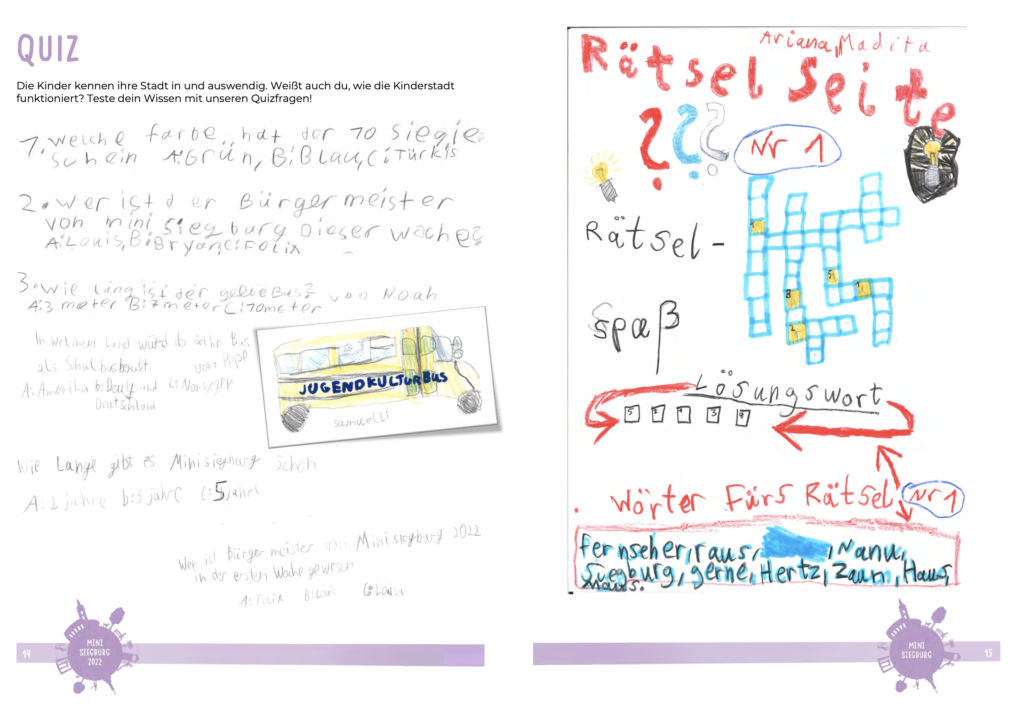 QUIZ
Die Kinder kennen ihre Stadt in und auswendig. Weißt auch du, wie die Kinderstadt
funktioniert? Teste dein Wissen mit unseren Quizfragen!
1. welche farbe hat der 10 Siegie
schein A:Grün, B:Blau, C:Türkis
2. wer ist der Bürgermeister
von mini Siegburg Dieser woche?
A:Louis, B:Bryan, C:Felix
3. wie lang ist der gelbe Bus? von Noah
A:3 meter B:7 meter C:10 meter
In welchem Land wurd der Bus
als Schulbus von Pepe
A: Amerika b: C: Norwegen
Deutschland
JUGENDKULTURBUS
Wie Lange gibt es Minisiegburg schon
A: 2 jahre b: 3 jahre C: 5 jahre
Wer ist Bürgermeister von Minisiegburg 2022
in der ersten Woche gewesen
A: Felix B: Louis C:
MINI
SIEGBURG
2022
14
Ariana, Madita
Rätsel Seite
???
Nr 1
Rätsel-
spaß
Lösungswort
Wörter Fürs Rätsel Nr 1
Fernseher, raus, , Nanu,
Siegburg, gerne, Hertz, Zaun, Haus,
Maus.
MINI
SIEGBURG
2022
15